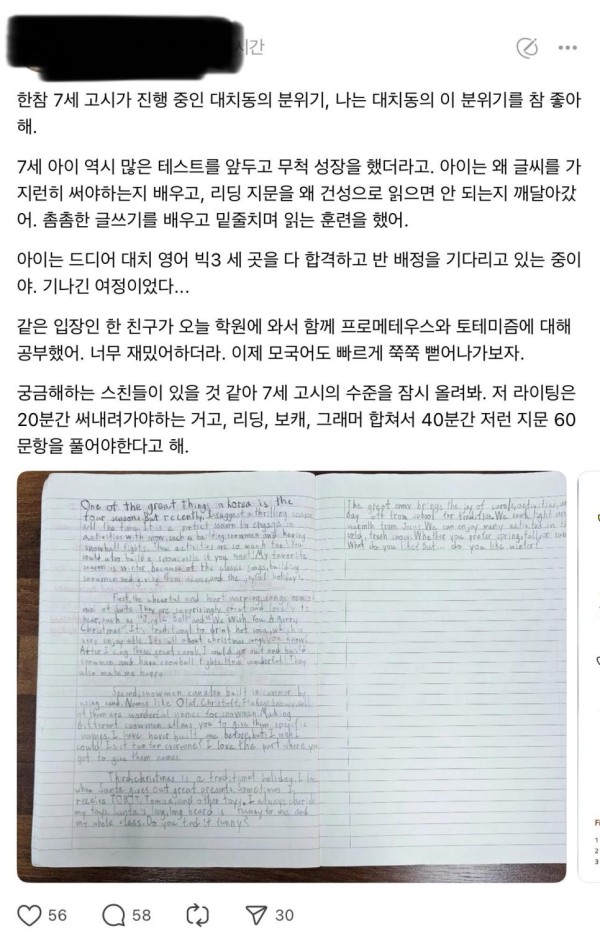 시간
한참 7세 고시가 진행 중인 대치동의 분위기, 나는 대치동의 이 분위기를 참 좋아
해.
7세 아이 역시 많은 테스트를 앞두고 무척 성장을 했더라고. 아이는 왜 글씨를 가
지런히 써야하는지 배우고, 리딩 지문을 왜 건성으로 읽으면 안 되는지 깨달아갔
어. 촘촘한 글쓰기를 배우고 밑줄치며 읽는 훈련을 했어.
아이는 드디어 대치 영어 빅3 세 곳을 다 합격하고 반 배정을 기다리고 있는 중이
야. 기나긴 여정이었다...
같은 입장인 한 친구가 오늘 학원에 와서 함께 프로메테우스와 토테미즘에 대해
공부했어. 너무 재밌어하더라. 이제 모국어도 빠르게 쭉쭉 뻗어나가보자.
궁금해하는 스친들이 있을 것 같아 7세 고시의 수준을 잠시 올려봐. 저 라이팅은
20분간 써내려가야하는 거고, 리딩, 보캐, 그래머 합쳐서 40분간 저런 지문 60
문항을 풀어야한다고 해.
One of the great things in korea is the
four seasons. But recently, I suggest a thrilling season
activities with snow, such as building snowmen and having
snowball fights. These activities are so much fun! You
could also build a snowcastle if you want! My favorite
season is winter, because of the
snowmen and the joyful holidays.
First, the cheerful and heart warming songs
Christmas". It's traditional to drink hot coco, which is
After I sing these great carols, I could go out and build
snowmen and have snowball fights. How wonderful! They
also make me happy.
Second, snowmen can also built in winter by
using sand. Names like Olaf,
of them are wonderful names for snowman. Making
different snowmen allows you to give them specific
names. I have never built one before, but I might
could! Isn't it fun for everyone? I love the part where you
get to give them names.
Third, christmas is a traditional holiday. I like
when Santa gives out great presents. Sometimes I
receive TOBOT, Tomica, and other toys. I always cherish
my toys. Santa's long, long beard is funny for me and
my whole class. Do you find it funny?
The great snow brings the joy of carols, activities, and
day off from school for
warmth from
cold, fresh snow. Whether you prefer spring, fall, or
What do you like? But... do you like winter?
56
58
30